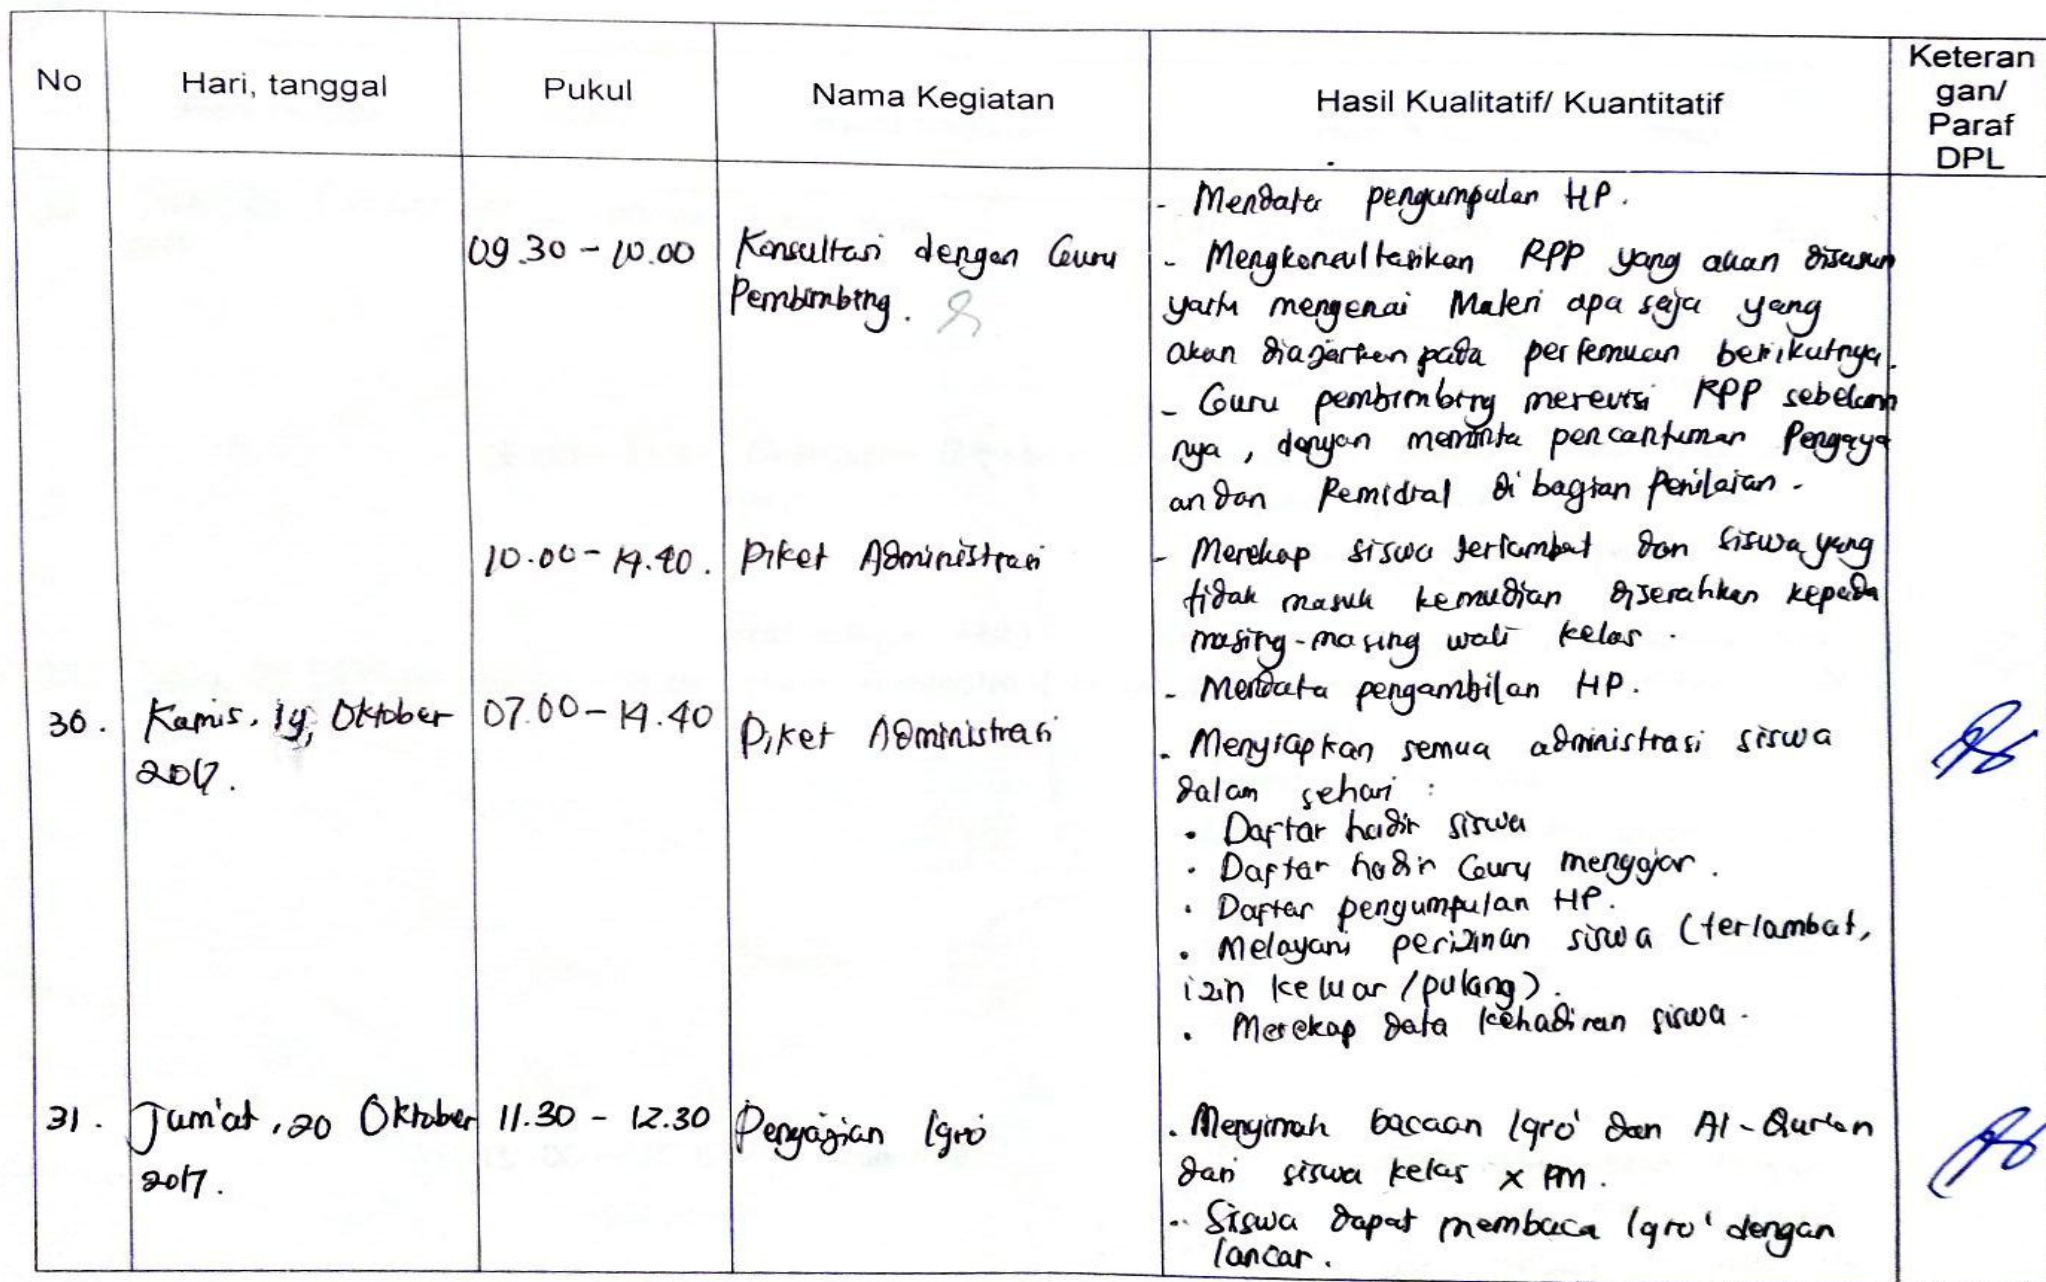 No
Hari, tanggal
Pukul
Nama Kegiatan
Hasil Kualitatif/ Kuantitatif
Keteran
gan/
Paraf
DPL
- Mendata pengumpulan HP.
09.30 - 10.00
Konsultasi dengan Guru
Pembimbing.
- Mengkonsultasikan RPP yang akan disusun
yaitu mengenai Materi apa saja yang
akan diajarkan pada pertemuan berikutnya.
- Guru pembimbing merevisi RPP sebelum
nya, dengan meminta pencantuman Pengaya
an dan Remidial di bagian Penilaian.
10.00 - 14.40.
Piket Administrasi
- Merekap siswa terlambat dan siswa yang
tidak masuk kemudian diserahkan kepada
masing-masing wali kelas.
- Mendata pengambilan HP.
30.
Kamis, 19, Oktober
2017.
07.00 - 14.40
Piket Administrasi
- Menyiapkan semua administrasi siswa
dalam sehari :
• Daftar hadir siswa
• Daftar hadir Guru mengajar.
• Daftar pengumpulan HP.
• Melayani perizinan siswa (terlambat,
izin keluar /pulang).
• Merekap data kehadiran siswa.
31.
Jum'at, 20 Oktober
2017.
11.30 - 12.30
Pengajian Iqro
- Menyimak bacaan Iqro' dan Al-Qur'an
dari siswa kelas X PM.
- Siswa dapat membaca Iqro' dengan
lancar.